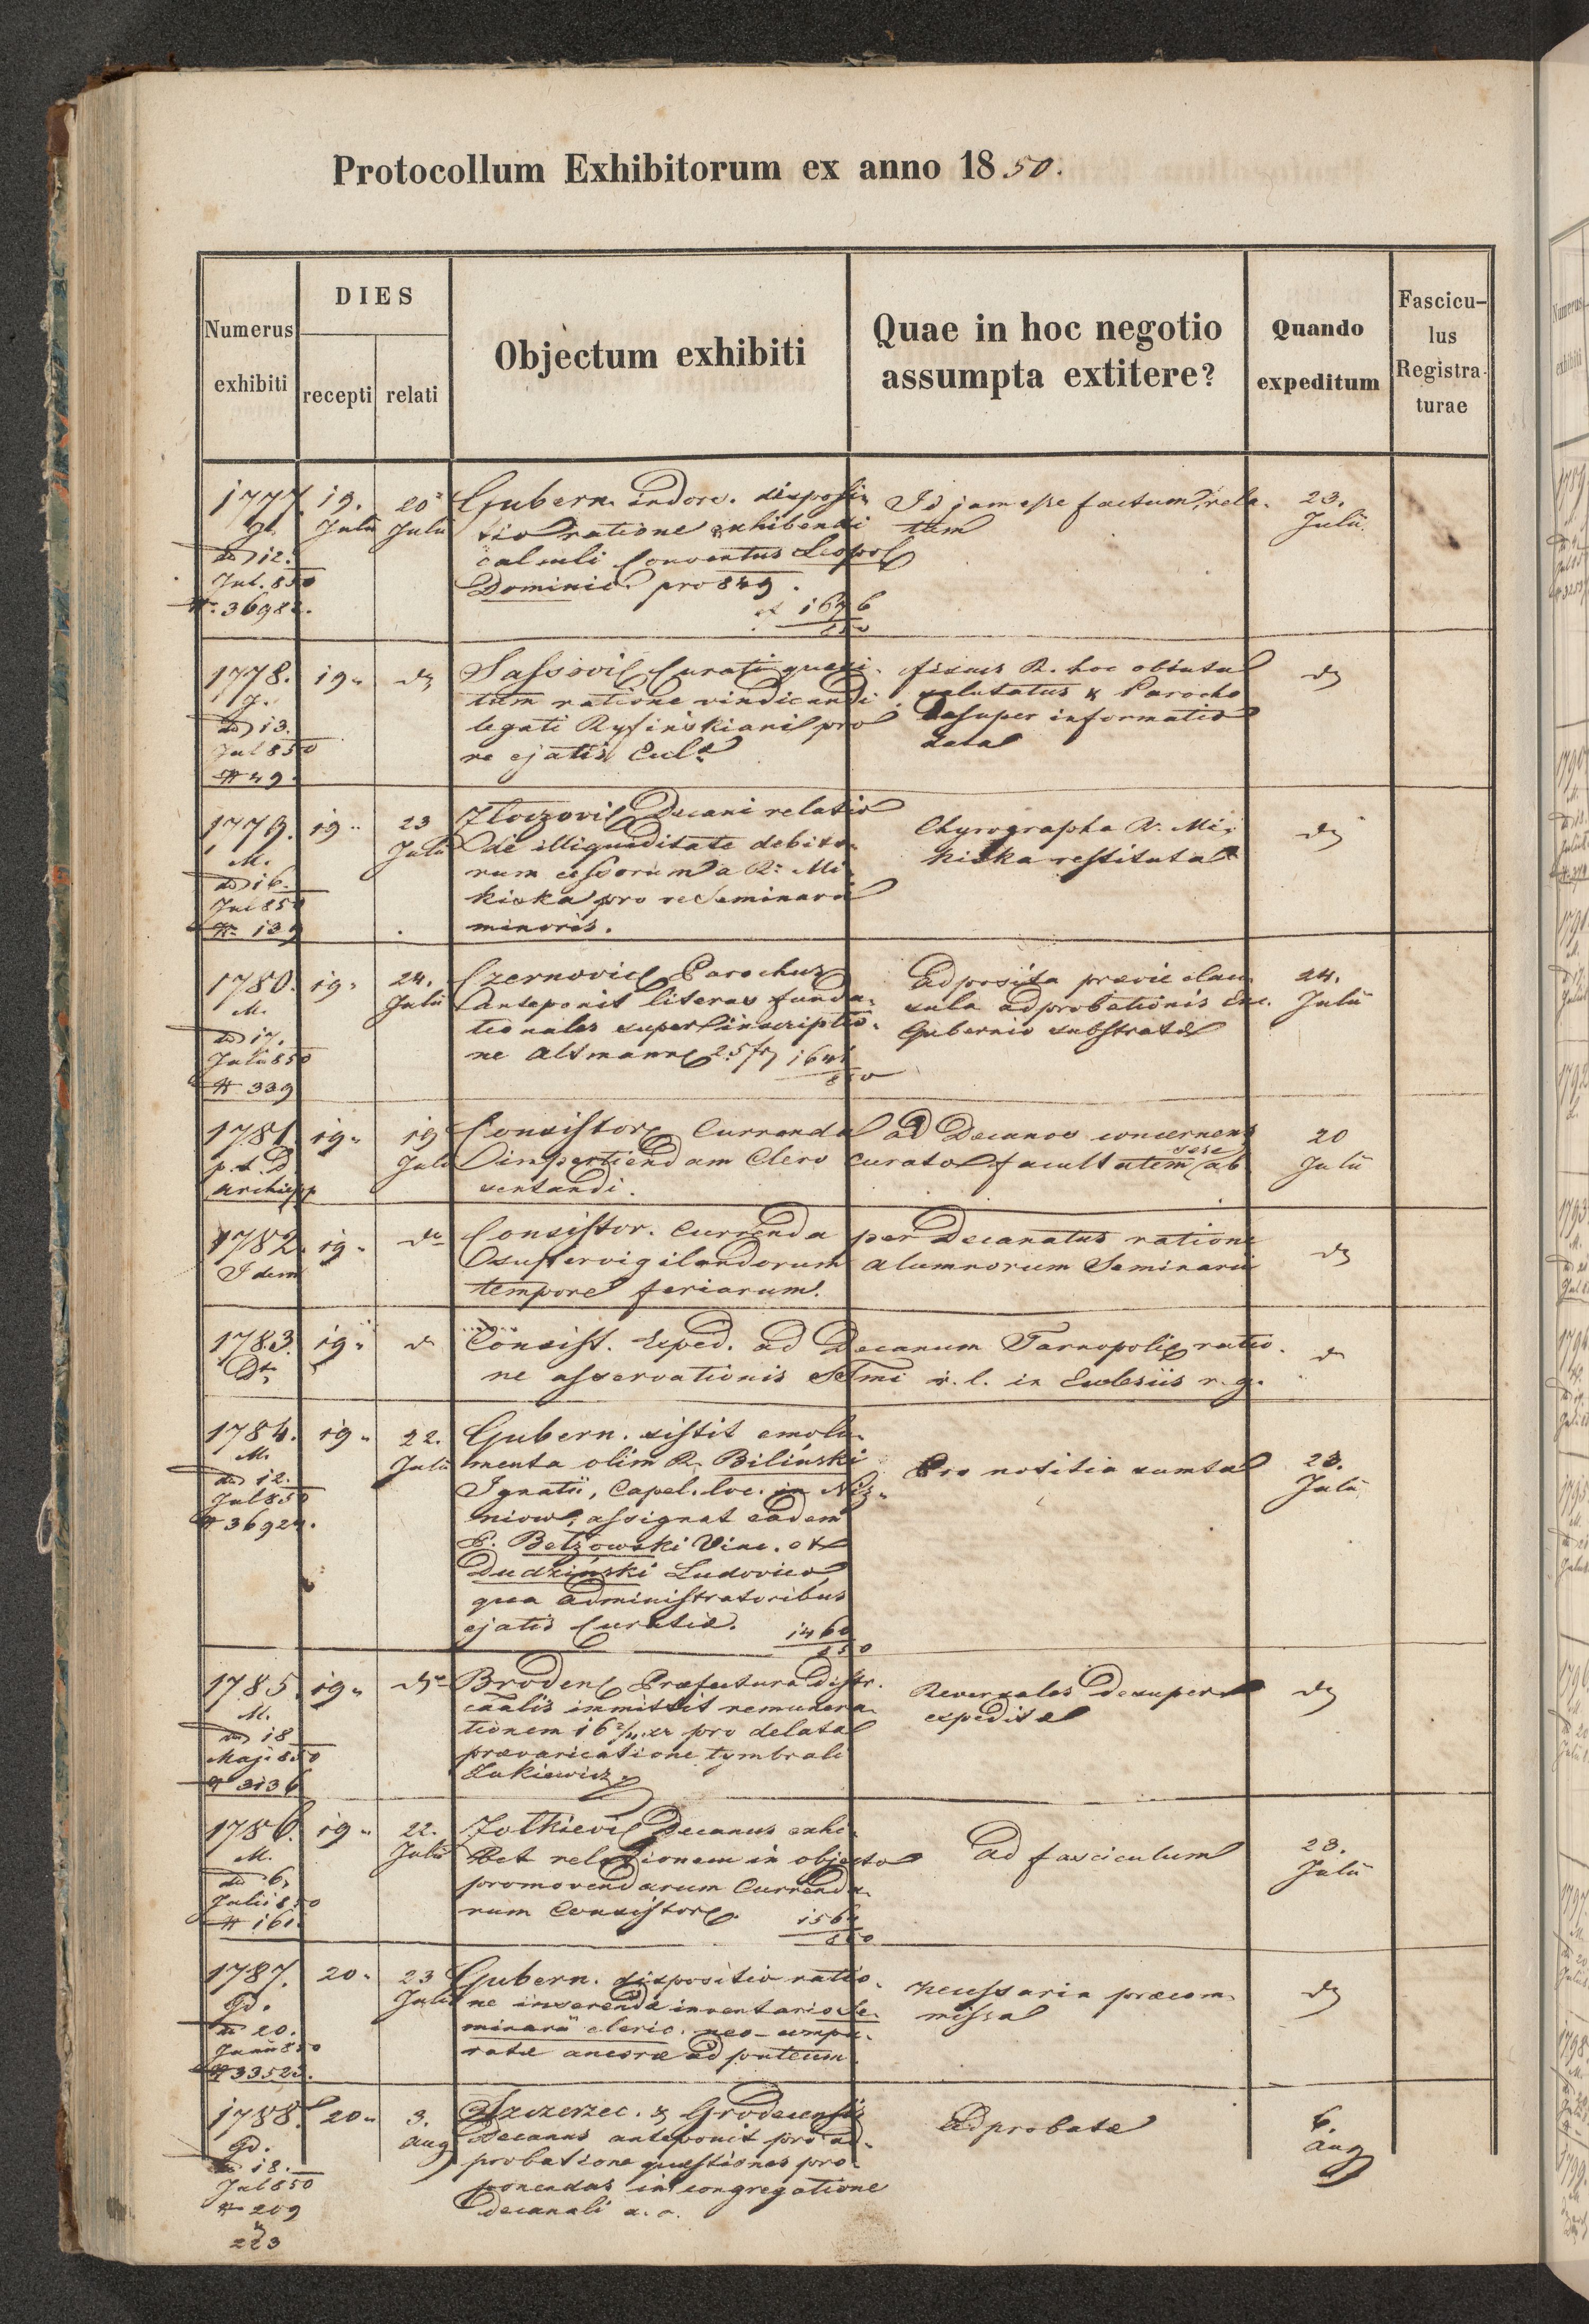 Protocollum Exhibitorum ex anno 1850.
Numerus exhibiti
DIES
recepti
relati
Objectum exhibiti
Quae in hoc negotio assumpta extitere?
Quando expeditum
Fascicu-
lus
Registra-
turae
1777. 19. Julii 20 Julii
dd 12.
Jul. 850
N. 36982.
Gubern. indors. disposi-
tio ratione exhibendi
calculi Conventus Leopol
Dominic. pro 849.
Id jam esse factum, rela-
tum
23.
Julii
1778. 19.
J.
dd 13.
Jul 850
N 49.
Sassovi Curati quaesi-
tum ratione vindicandi
legati Ryfinskiani pro
re ejatis Eccl
fiscus R. hoc
Parocho
desuper informatio
data
1779. 19. 23 Julii
M.
dd 16.
Jul 850
N. 139
Zloczovi Decani relatio
de illiquiditate debito-
rum cessorum a R. Mi
kiska pro re Seminarii
minoris.
Chyrographa R. Mi-
kiska restituta
1780. 19. 24. Julii
M.
dd 17.
Julii 850
N 339
Czernovic Parochus
anteponit literas funda-
tionales super inscriptio-
ne Altmann 25 fr 1641
850
Adposita praevie clau-
sula adprobationis exc.
Gubernio substratae
24.
Julii
1781. 19. 19 Julii
p.t.D.
Archiepp
Consistor Currenda ad Decanos concernens
impertiendam Clero curato facultatem sese ab
sentandi.
20
Julii
1782. 19.
Idem
Consistor. Currenda per Decanatus ratione
supervigilandorum Alumnorum Seminarii
tempore feriarum.
1783. 19.
Consist. Exped. ad Decanum Tarnopoli ratio-
ne asservationis SSmi r. l. in Ecclesiis r. g.
1784. 19. 22. Julii
M.
dd 12.
Jul 850
N 36924.
Gubern. sistit emolu-
menta olim R. Biliński
Ignatii, Capel. loc. in Niz-
niow, assignat eadem
P. Betzowski Vinc. et
Dudziński Ludovico
qua administratoribus
ejatis Curatiae. 1460
850
Pro notitia sumta
23.
Julii
1785. 19.
M.
dd 18
Maji 850
N 3136
Broden Praefectura distr.
immittit remunera-
tionem 16 2/4 xr pro delata
praevaricatione tymbrali
Lukiewicz
Reversales desuper
expeditae
1786. 19. 22. Julii
M.
dd 6.
Julii 850
N 161.
Zolkievi Decanus exhi-
bet relationem in objecto
promovendarum Currenda-
rum Consistor. 1564
850
Ad fasciculum
23.
Julii
1787. 20. 23 Julii
Gd.
dd 20.
Junii 850
N 33523.
Gubern. dispositio ratio-
ne inserendae inventario Se-
minarii cleric. neo-compa-
ratae ancorae ad puteum
necessaria praecom-
missa
1788. 20. 3. Aug
Gd.
dd 18.
Jul 850
N 209
223
Szczerzec. & Grodecensis
Decanus anteponit pro ad-
probatione quaestiones pro-
ponendas in congregatione
decanali a. c.
Adprobatae
6.
Aug